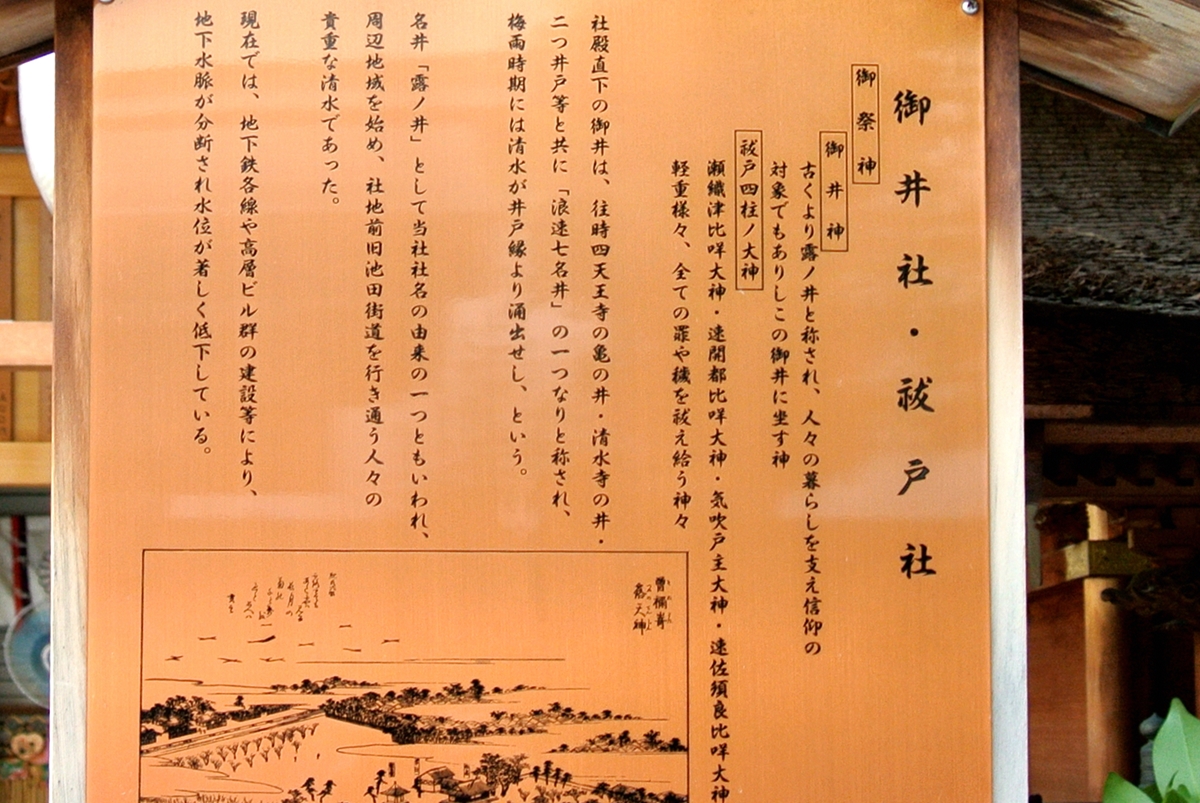 御井社・祓戸社
御祭神
御井神
古くより露ノ井と称され、人々の暮らしを支え信仰の
対象でもありしこの御井に坐す神
祓戸四柱ノ大神
瀬織津比咩大神・速開都比咩大神・気吹戸主大神・速佐須良比咩大神
軽重様々、全ての罪や穢を祓え給う神々
社殿直下の御井は、往時四天王寺の亀の井・清水寺の井・
二つ井戸等と共に「浪速七名井」の一つなりと称され、
梅雨時期には清水が井戸縁より涌出せし、という。
名井「露ノ井」として当社社名の由来の一つともいわれ、
周辺地域を始め、社地前旧池田街道を行き通う人々の
貴重な清水であった。
現在では、地下鉄各線や高層ビル群の建設等により、
地下水脈が分断され水位が著しく低下している。
曽根嵜
露天神